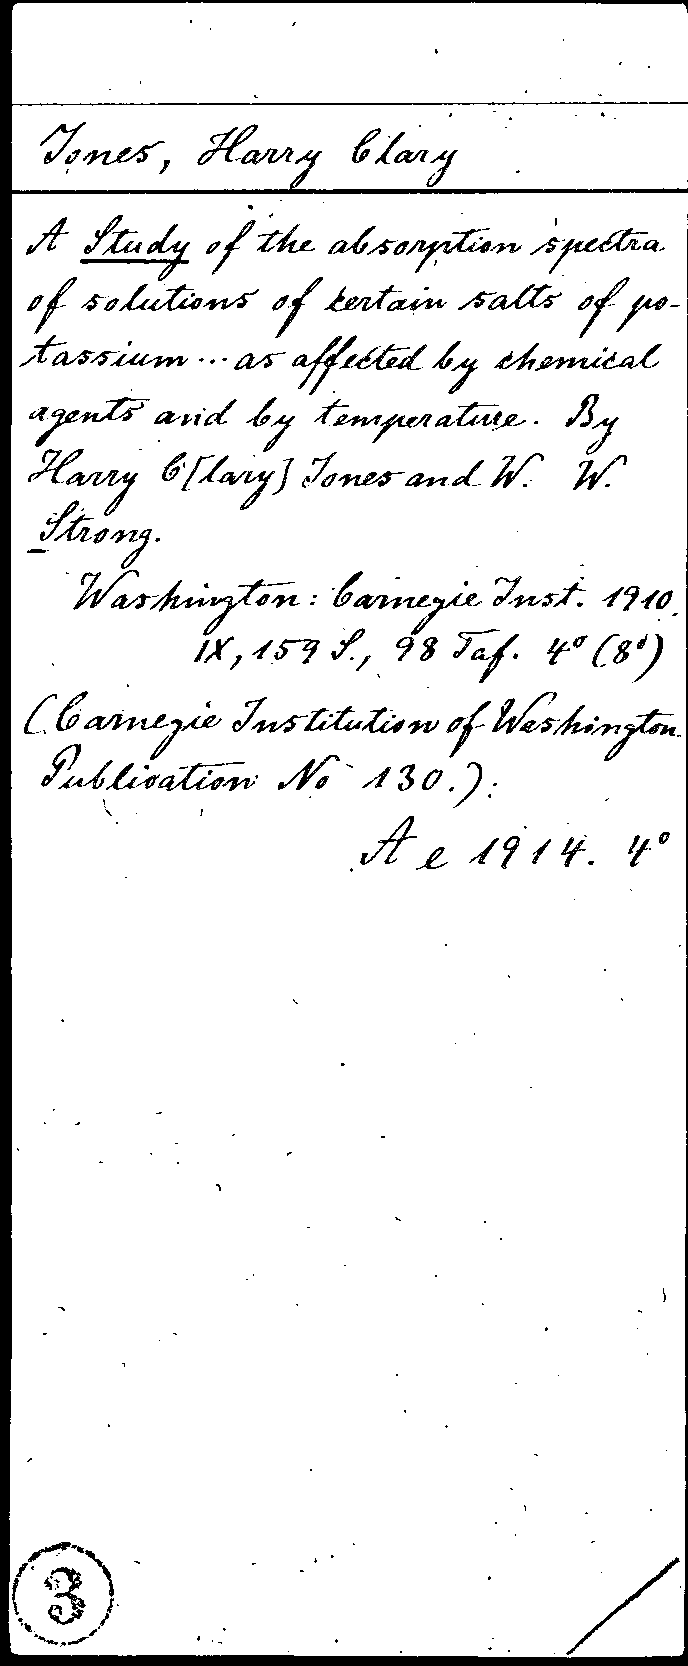 Jones, Harry Clary
A Study of the absorption spectra
of solutions of certain salts of po-
tassium ... as affected by chemical
agents and by temperature. By
Harry C[lary] Jones and W. W.
Strong.
Washington: Carnegie Inst. 1910.
IX, 159 S., 98 Taf. 4° (8°)
(Carnegie Institution of Washington.
Publication No 130.).
Ae 1914. 4°
3